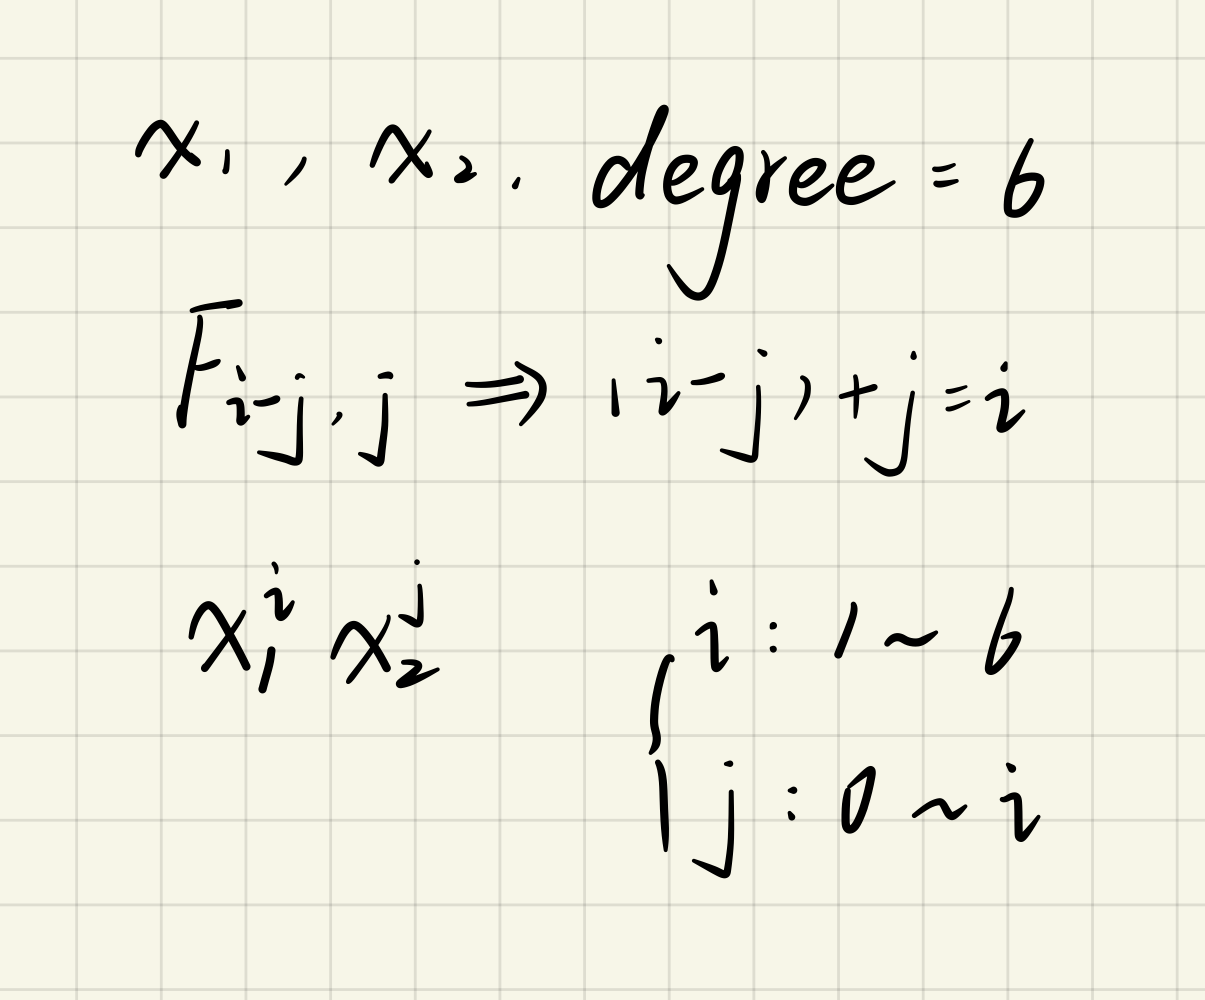 x₁, x₂. degree = 6
F_{i-j, j} ⇒ (i-j)+j=i
x₁ⁱ x₂ʲ { i : 1 ~ 6
j : 0 ~ i